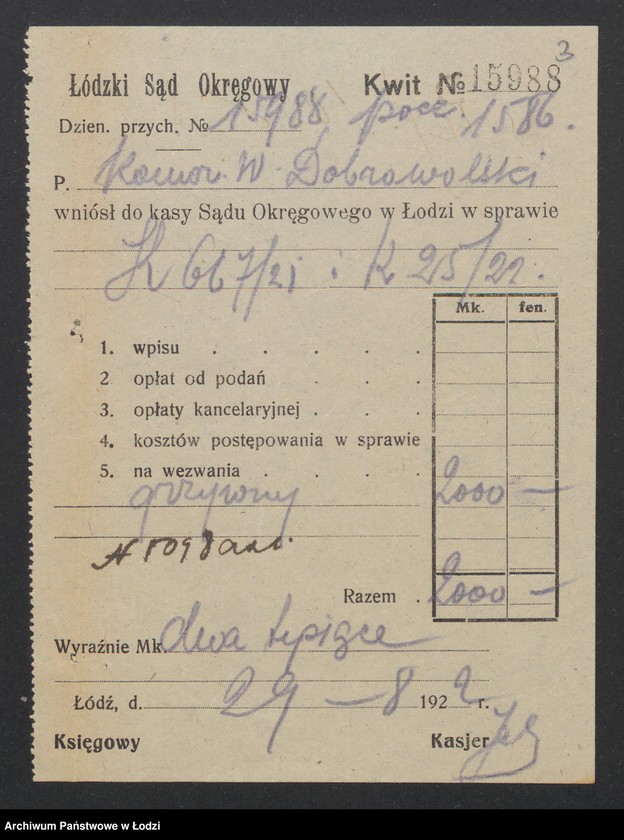 3
Łódzki Sąd Okręgowy Kwit № 15988
Dzien. przych. № 15988 pocz. 1586.
P. Komor. W. Dobrowolski
wniósł do kasy Sądu Okręgowego w Łodzi w sprawie
K 667/21 i K 25/22.
Mk. fen.
1. wpisu . . . . .
2 opłat od podań . . .
3. opłaty kancelaryjnej . . .
4. kosztów postępowania w sprawie
5. na wezwania . . . .
grzywny 2000 —
Razem . 2000 —
Wyraźnie Mk. dwa tysiące
Łódź, d. 29 — 8 1922 r.
Księgowy Kasjer
Archiwum Państwowe w Łodzi